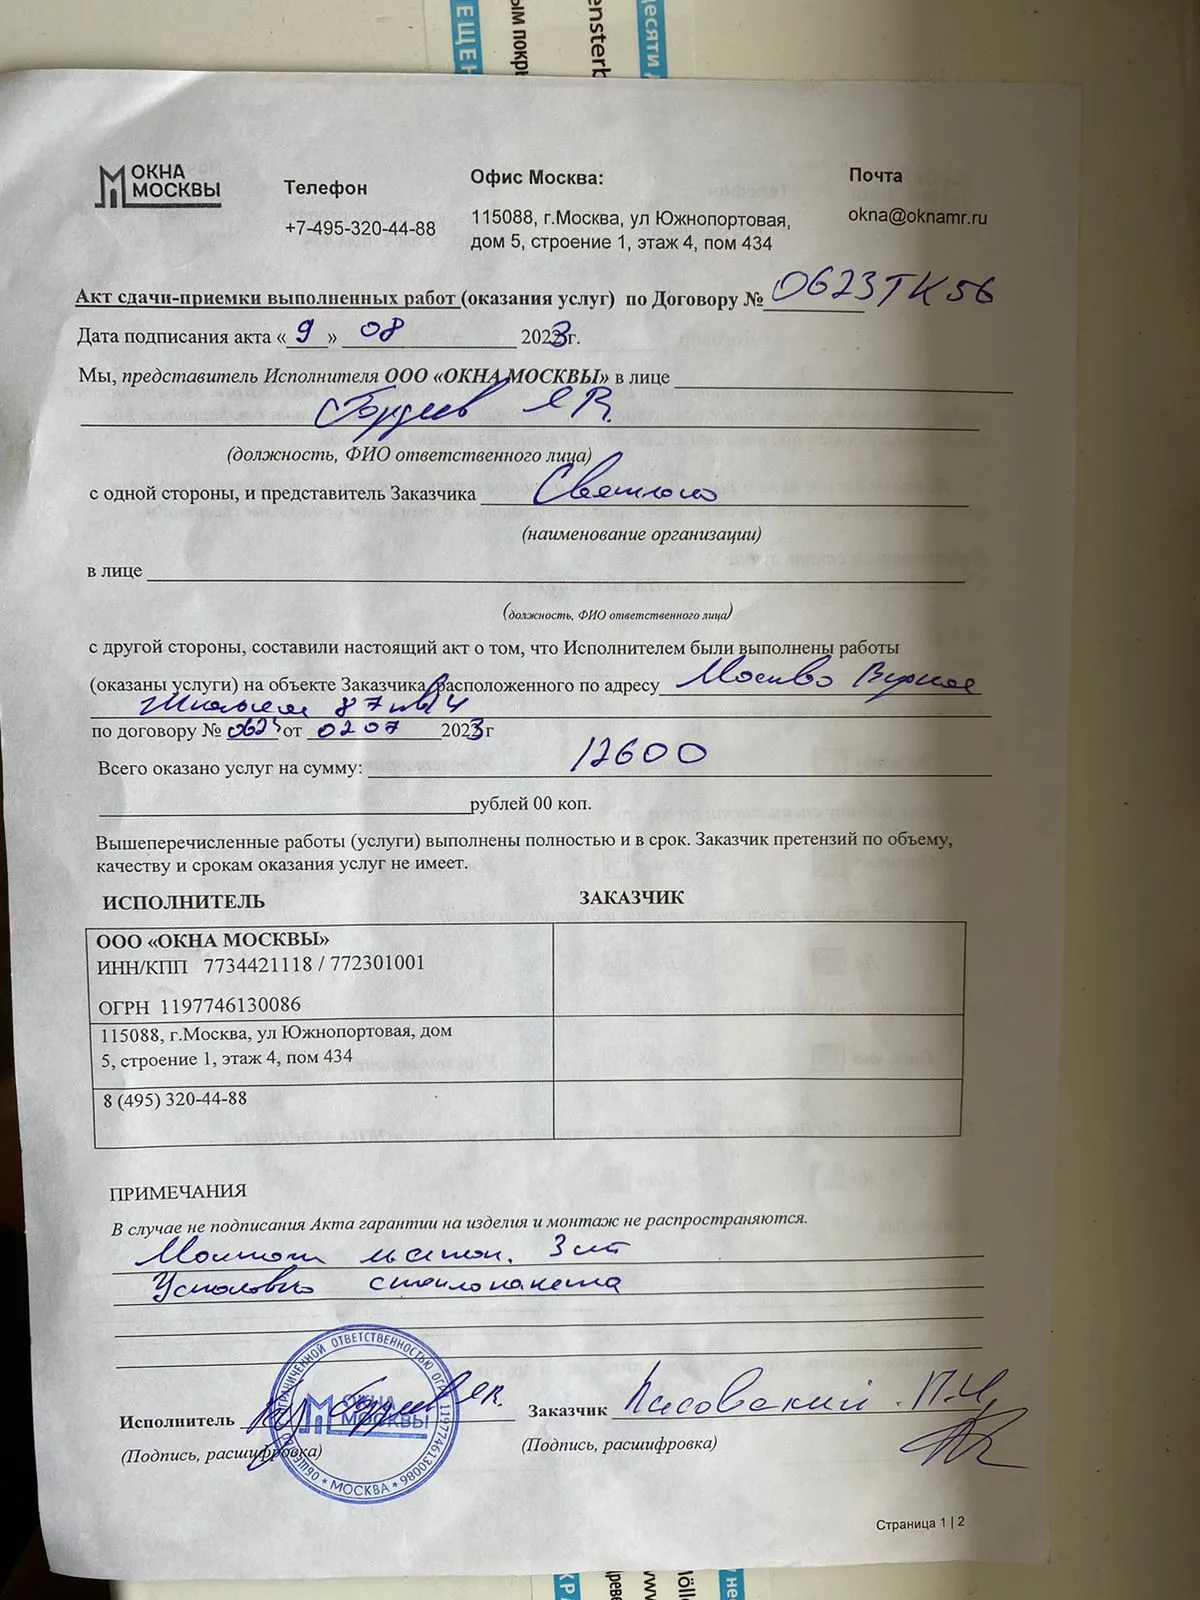 ЕЩЕН
ым покры
ensterb
десяти
ОКНА
МОСКВЫ
Телефон
+7-495-320-44-88
Офис Москва:
115088, г.Москва, ул Южнопортовая,
дом 5, строение 1, этаж 4, пом 434
Почта
okna@oknamr.ru
Акт сдачи-приемки выполненных работ (оказания услуг) по Договору № 0623ТК56
Дата подписания акта « 9 » 08 2023г.
Мы, представитель Исполнителя ООО «ОКНА МОСКВЫ» в лице
Гордеев
(должность, ФИО ответственного лица)
с одной стороны, и представитель Заказчика
(наименование организации)
в лице
(должность, ФИО ответственного лица)
с другой стороны, составили настоящий акт о том, что Исполнителем были выполнены работы
(оказаны услуги) на объекте Заказчика, расположенного по адресу Москва
87 кв 4
по договору № 0623 от 02 07 2023 г
Всего оказано услуг на сумму: 12600
рублей 00 коп.
Вышеперечисленные работы (услуги) выполнены полностью и в срок. Заказчик претензий по объему,
качеству и срокам оказания услуг не имеет.
ИСПОЛНИТЕЛЬ
ЗАКАЗЧИК
ООО «ОКНА МОСКВЫ»
ИНН/КПП 7734421118 / 772301001
ОГРН 1197746130086
115088, г.Москва, ул Южнопортовая, дом
5, строение 1, этаж 4, пом 434
8 (495) 320-44-88
ПРИМЕЧАНИЯ
В случае не подписания Акта гарантии на изделия и монтаж не распространяются.
Монтаж москит. 3 шт
Установка стеклопакета
Исполнитель Гордеев
Заказчик П.И.
(Подпись, расшифровка)
(Подпись, расшифровка)
ОГРАНИЧЕННОЙ ОТВЕТСТВЕННОСТЬЮ ОГРН 1197746130086 * МОСКВА * ОБЩЕСТВО
ОКНА
МОСКВЫ
Страница 1 | 2